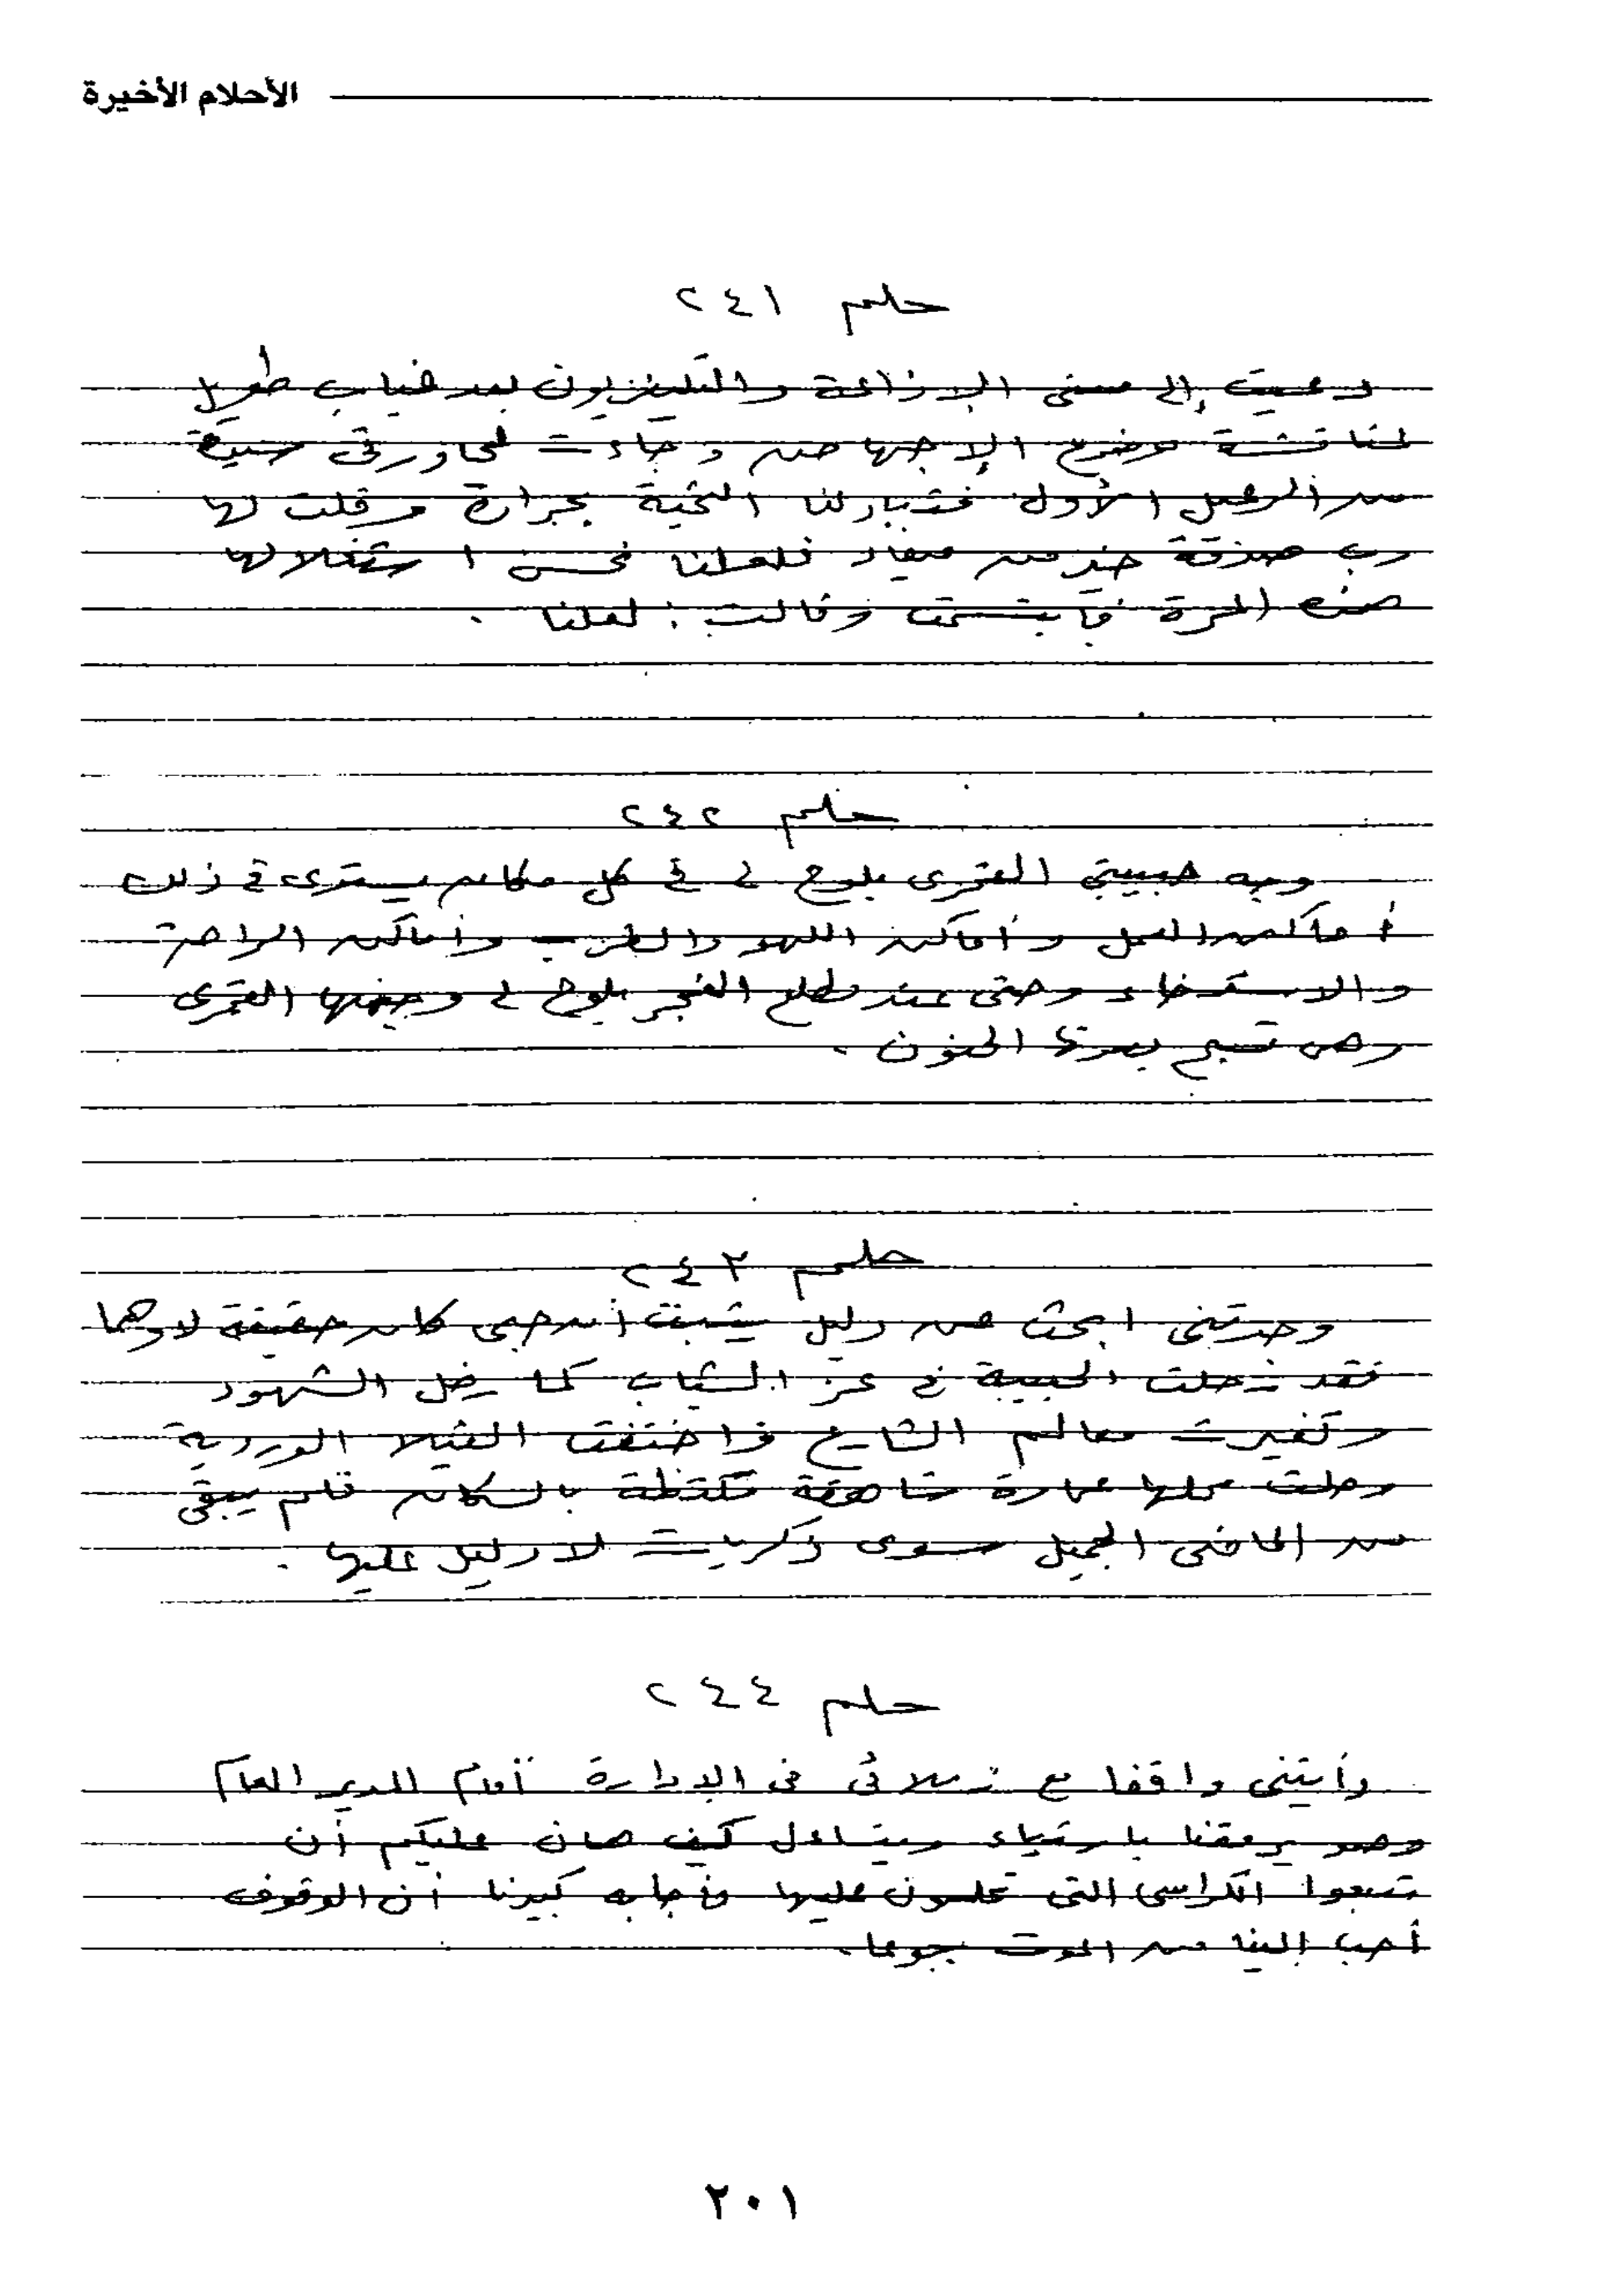 الأحلام الأخيرة
حلم ٢٤١
دعيت إلى مبنى الإذاعة والتليفزيون بعد غياب طويل
لمناقشة موضوع الإجهاض وجاءت لمحاورتى سيدة
من الرعيل الأول فتبادلنا التحية بحرارة وقلت لها
رب صدفة خير من ميعاد فلعلنا نحسن استغلالها
هذه المرة فابتسمت وقالت : لعلنا .
حلم ٢٤٢
وجه حبيبتي القمرى يلوح لى فى كل مكان يستوى فى ذلك
أماكن العمل وأماكن اللهو والطرب وأماكن الراحة
والاسترخاء وحتى عند مطلع الفجر يلوح لى وجهها القمرى
وهى تسبح بصوتها الحنون .
حلم ٢٤٣
وجدتنى ابحث عن دليل يثبت أن حبى كان حقيقة لا وهما
فقد رحلت الحبيبة فى عز الشباب كما رحل الشهود
وتغيرت معالم الشارع واختفت الفيلا الوردية
وحلت محلها عمارة شاهقة مكتظة بالسكان فلم يبقى
من الماضى الجميل سوى ذكريات لا دليل عليها .
حلم ٢٤٤
رأيتنى واقفا مع زملائى فى الإدارة أمام المدير العام
وهو يرمقنا بارتياء ويتساءل كيف هان عليكم أن
تبيعوا الكراسى التى تجلسون عليها فأجابه كبيرنا أن الوقوف
أحب إلينا من الموت جوعا .
٢٠١